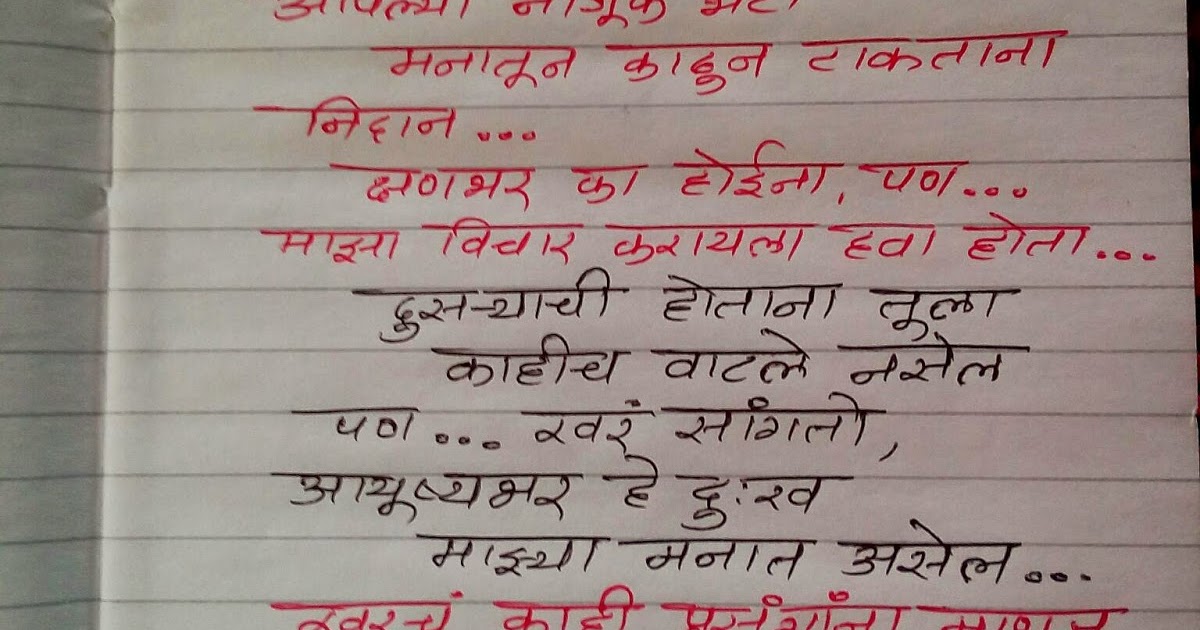 आपल्या नाजूक
मनातून काढुन टाकताना
निदान...
क्षणभर का होईना, पण...
माझा विचार करायला हवा होता...
दुसऱ्याची होताना तूला
काहीच वाटले नसेल
पण... खरं सांगतो,
आयूष्यभर हे दुःख
माझ्या मनात असेल...
खरचं काही